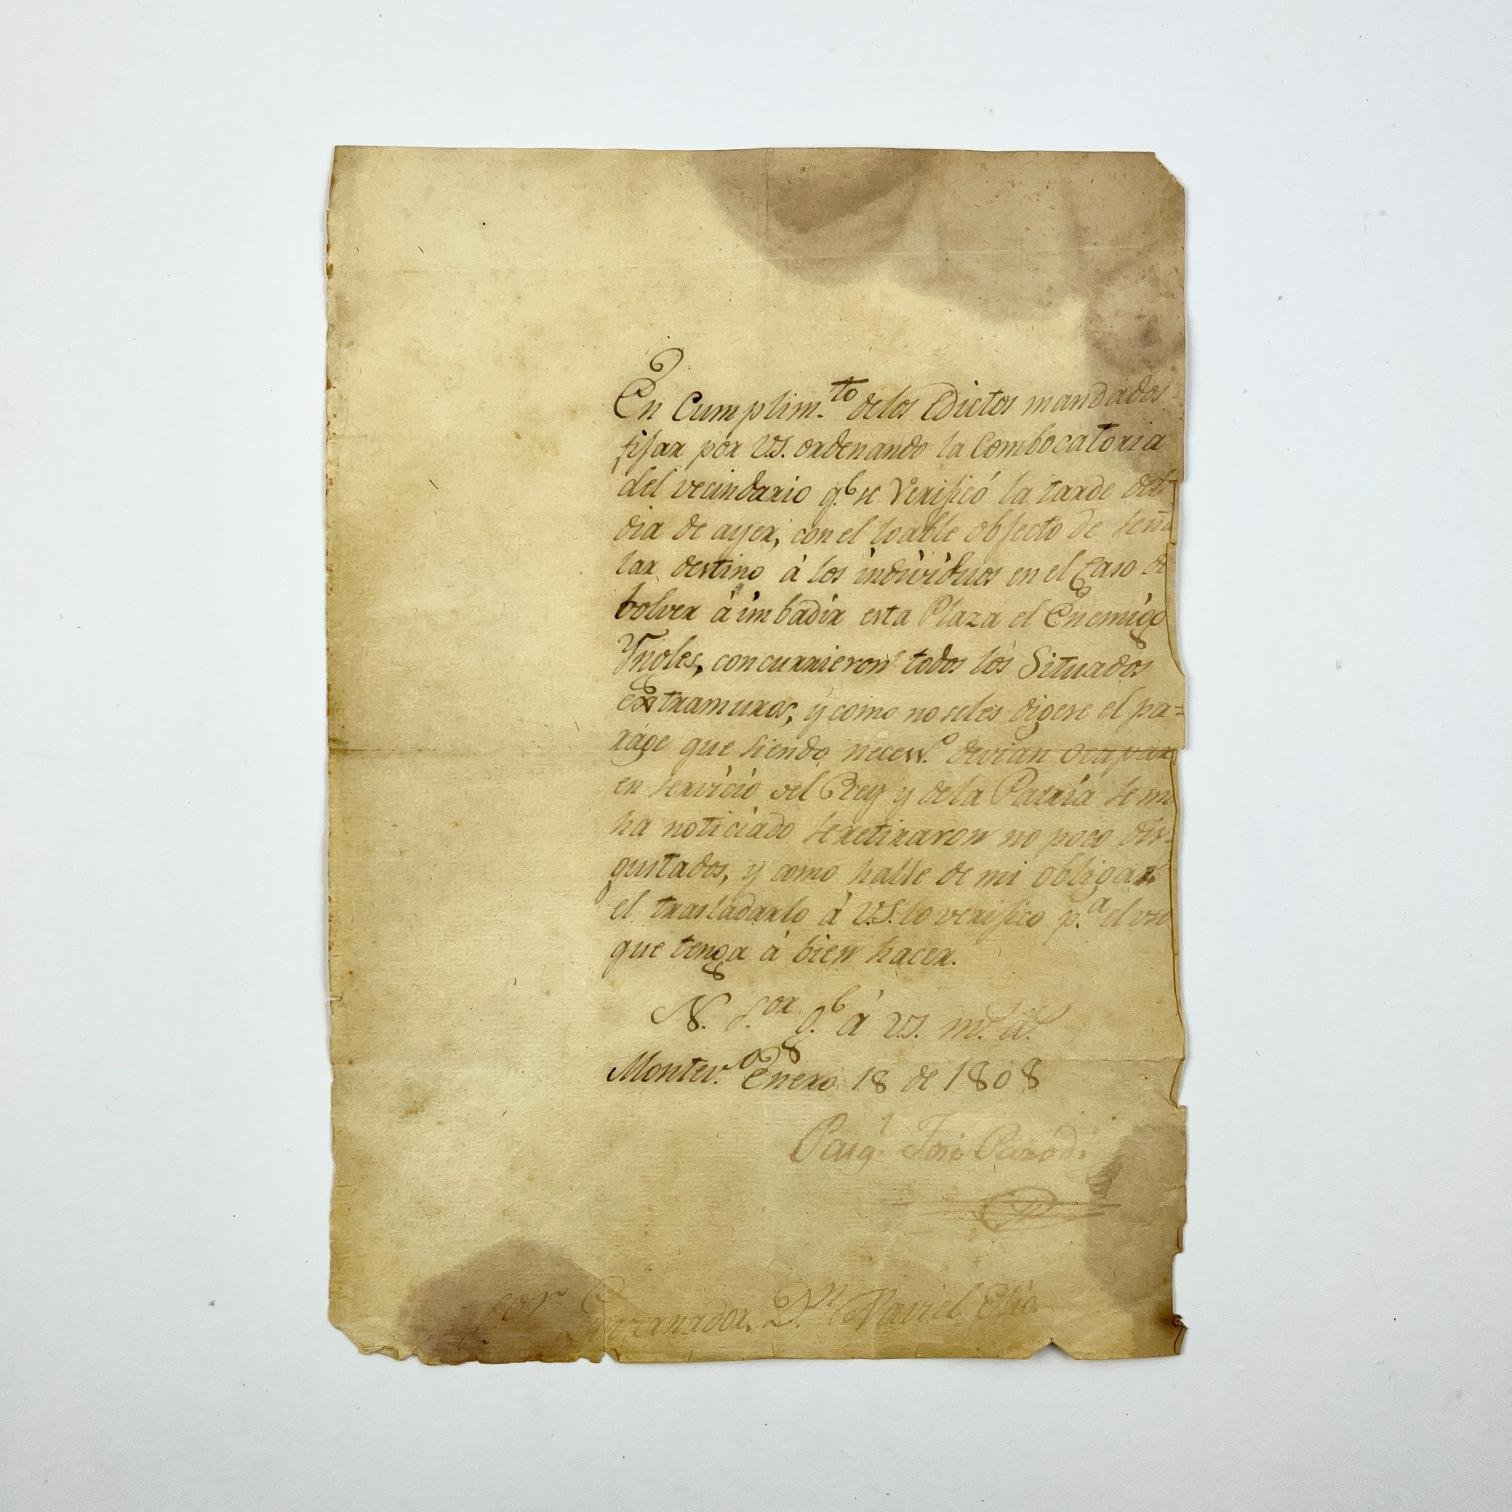 En Cumplim.to delos Edictos mandados
fijar por VS. ordenando la Combocatoria
del vecindario q.e se Verificó la tarde del
dia de ayer, con el loable objecto de seña
lar destino á los individuos en el Caso de
bolver á imbadir esta Plaza el Enemigo
Yngles, concurrieron todos los Situados
extramuros, y como no seles digese el pa=
rage que siendo neces.o devian ocupar
en servicio del Rey y dela Patria se m
ha noticiado seretiraron no poco dis-
gustados, y como halle de mi obligac.n
el trasladarlo á V.S. lo verifico p.a el uso
que tenga á bien hacer.
N. S.or g.e á VS. m.s a.s
Montev.o Enero 18 de 1808
José Parodi
Governador D.n Xavier Elio